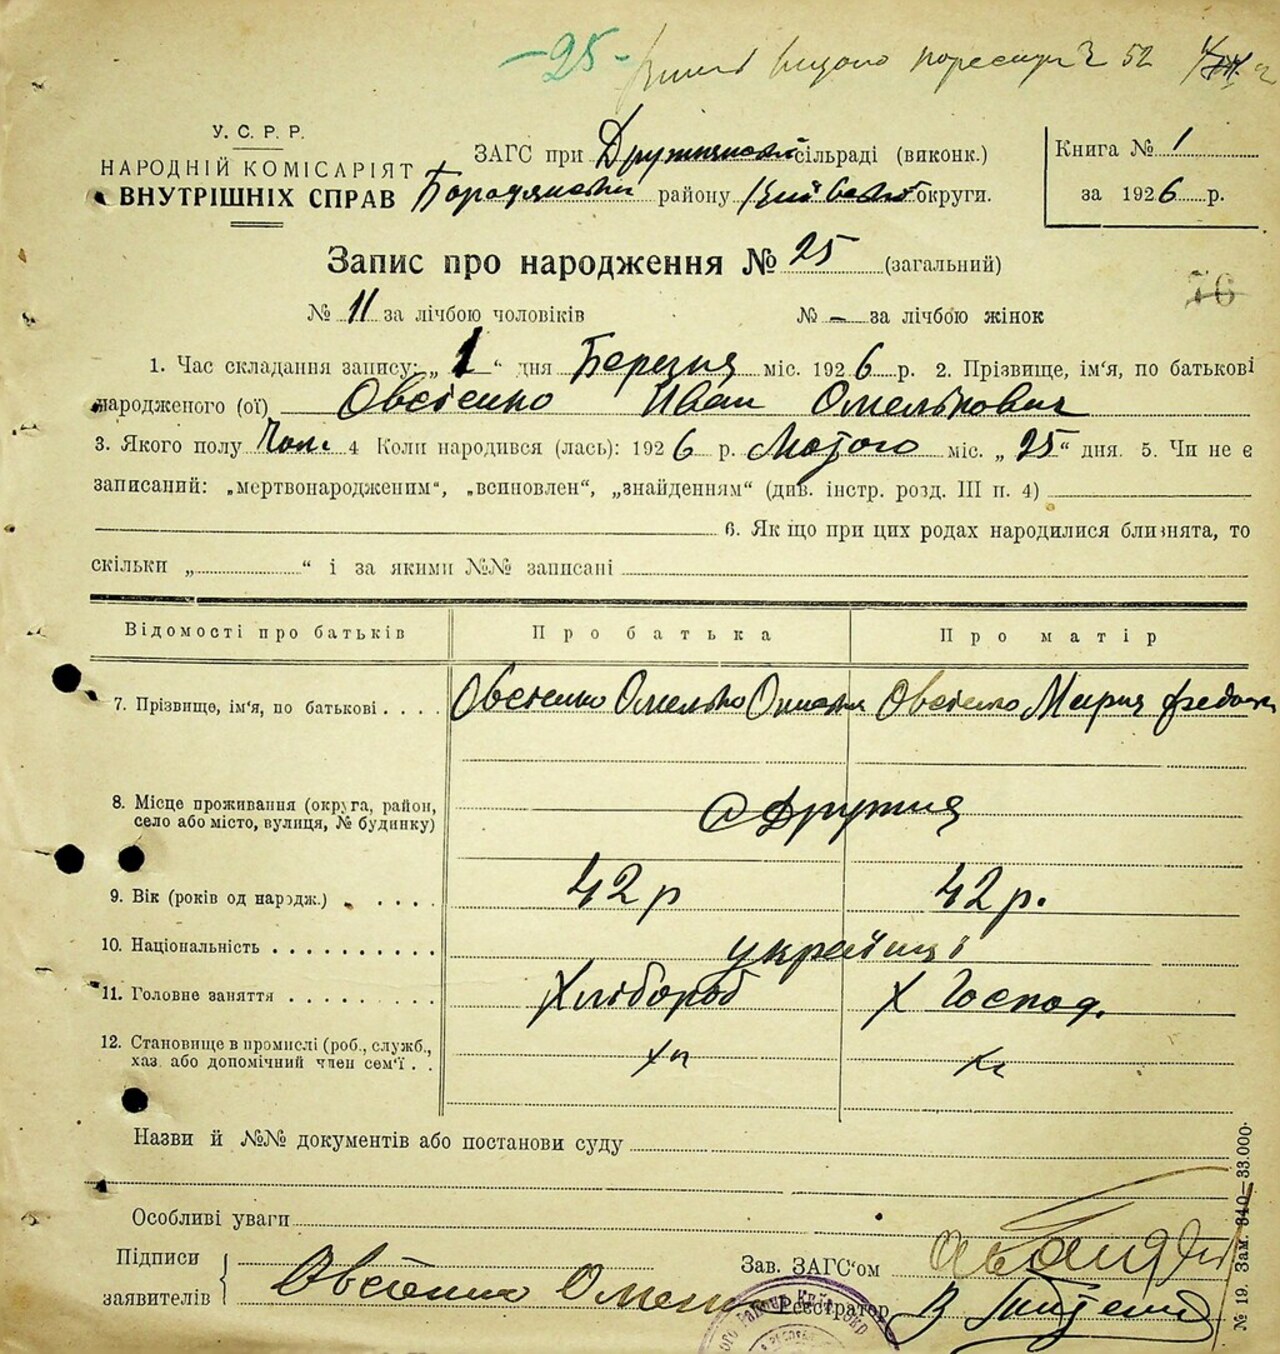 -25-
У.С.Р.Р.
НАРОДНІЙ КОМІСАРІЯТ
ВНУТРІШНІХ СПРАВ
ЗАГС при Дружнянській сільраді (виконк.)
Бородянськ району Київської округи.
Книга № 1
за 1926 р.
Запис про народження № 25 (загальний)
76
№ 11 за лічбою чоловіків № – за лічбою жінок
1. Час складання запису: „1“ дня Березня міс. 1926 р. 2. Прізвище, ім'я, по батькові
народженого (ої) Овсієнко Иван Омелькович
3. Якого полу Чол. 4 Коли народився (лась): 1926 р. Лютого міс. „25“ дня. 5. Чи не є
записаний: „мертвонародженим“, „всиновлен“, „знайденням“ (див. інстр. розд. III п. 4)
6. Як що при цих родах народилися близнята, то
скільки „ “ і за якими №№ записані
Відомості про батьків Про батька Про матір
7. Прізвище, ім'я, по батькові . . . . Овсієнко Омелько Овсієнко Мария
8. Місце проживання (округа, район,
село або місто, вулиця, № будинку) с Дружня
9. Вік (років од народж.) . . . . . 42 р 42 р.
10. Національність . . . . . . . . . . українці
11. Головне заняття . . . . . . . . . Хлібороб Х Господ.
12. Становище в промислі (роб., служб.,
хаз. або допомічний член сем'ї . .
Назви й №№ документів або постанови суду
Особливі уваги
Підписи
заявителів Овсієнко Омелько
Зав. ЗАГС'ом
Реєстратор
№ 19. Зам. 340—33.000.